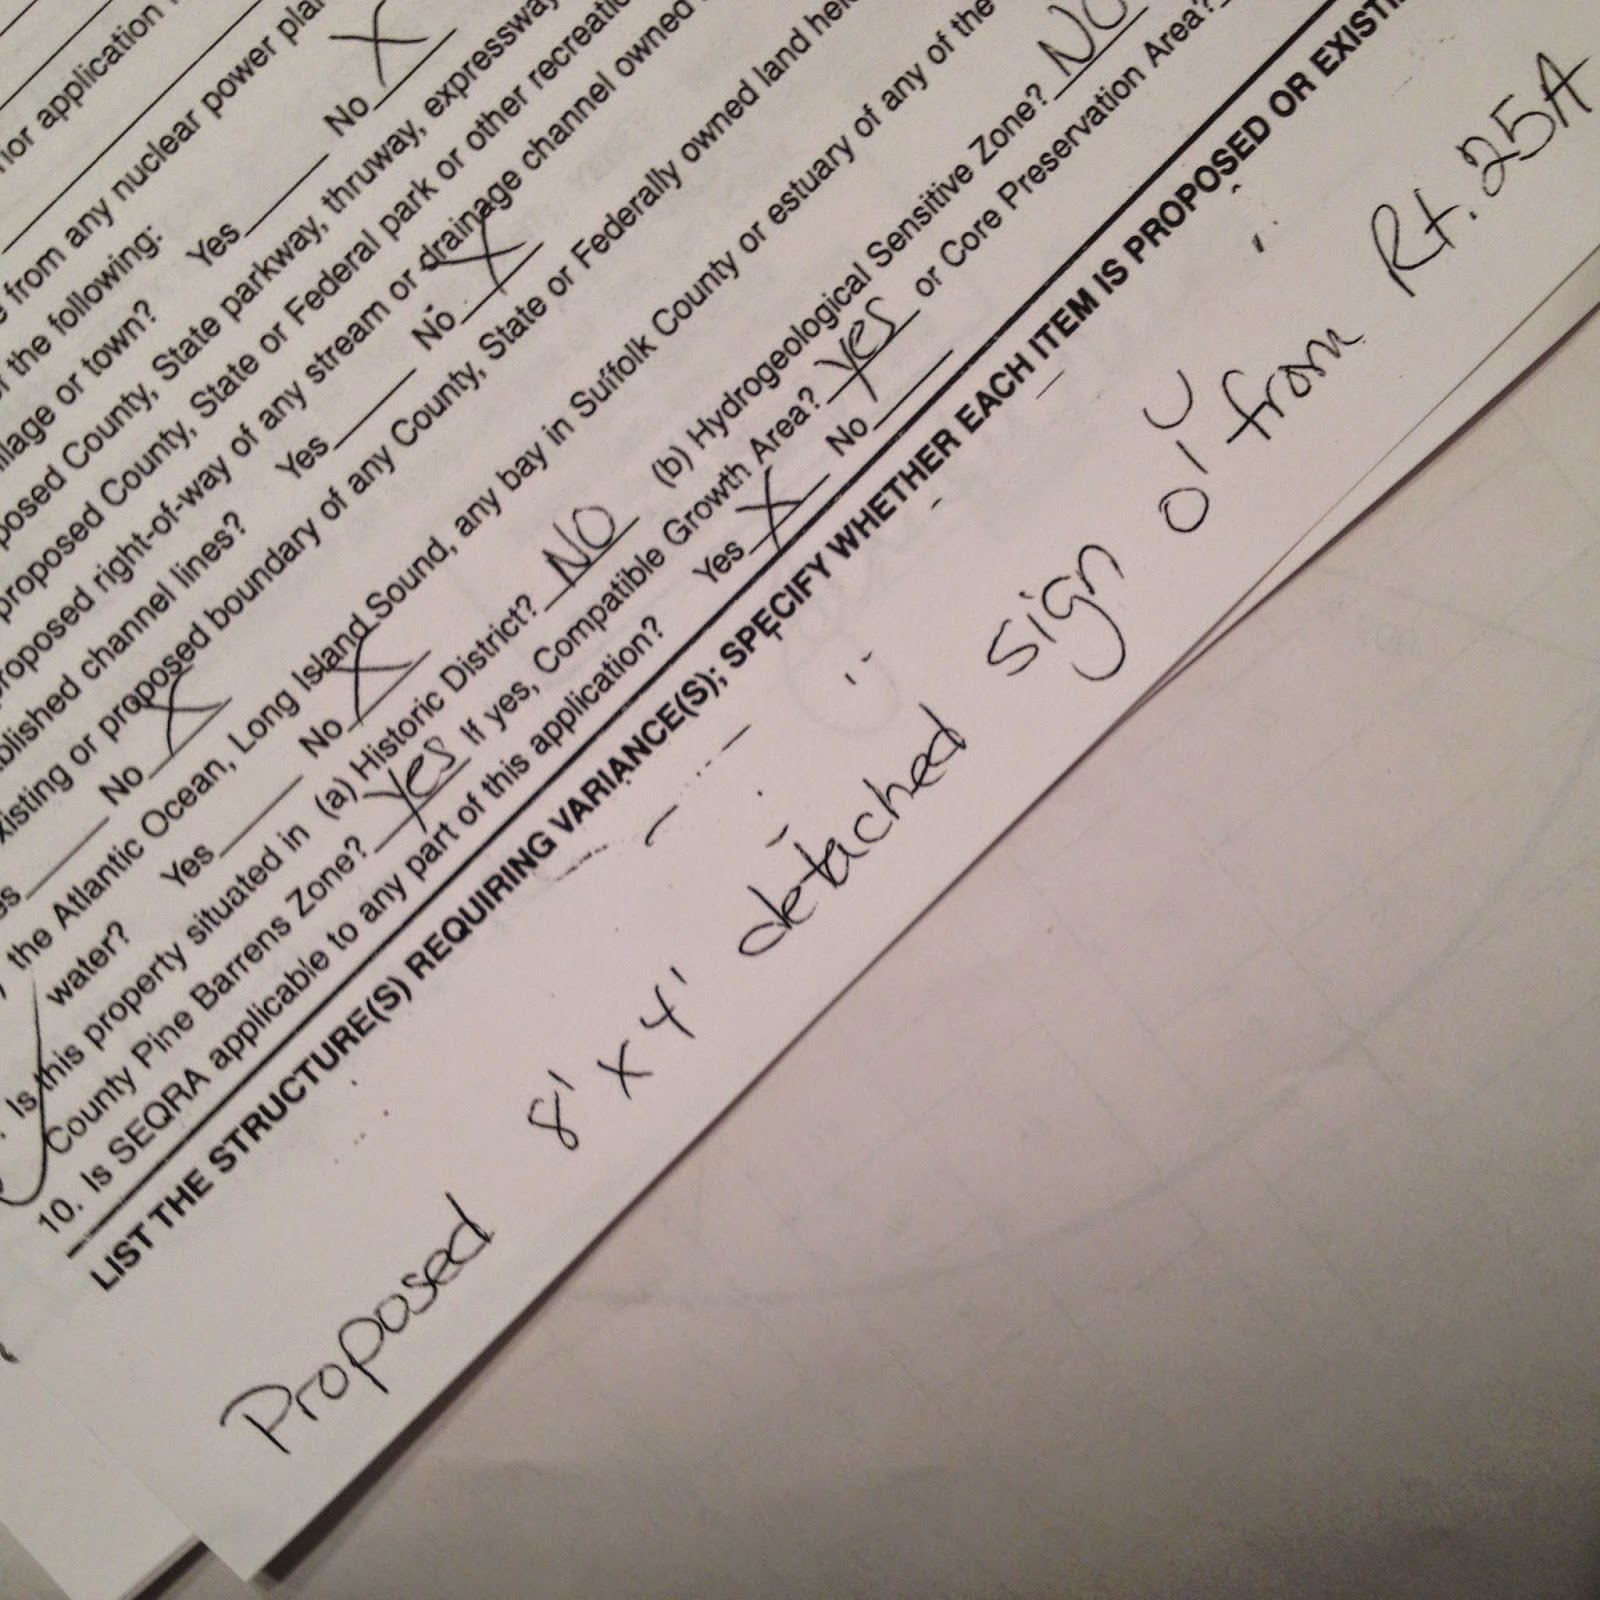 application
from any nuclear power
the following:
or town? Yes No X
County, State parkway, thruway, expressway
proposed County, State or Federal park or other
proposed right-of-way of any stream or drainage channel owned
channel lines? Yes No X
or proposed boundary of any County, State or Federally owned land
No X
the Atlantic Ocean, Long Island Sound, any bay in Suffolk County or estuary of any of the
water? Yes No X
Is this property situated in (a) Historic District? NO (b) Hydrogeological Sensitive Zone? NO
County Pine Barrens Zone? yes If yes, Compatible Growth Area? yes or Core Preservation Area?
10. Is SEQRA applicable to any part of this application? Yes X No
LIST THE STRUCTURE(S) REQUIRING VARIANCE(S); SPECIFY WHETHER EACH ITEM IS PROPOSED OR
Proposed 8' x 4' detached sign 0' from Rt. 25A